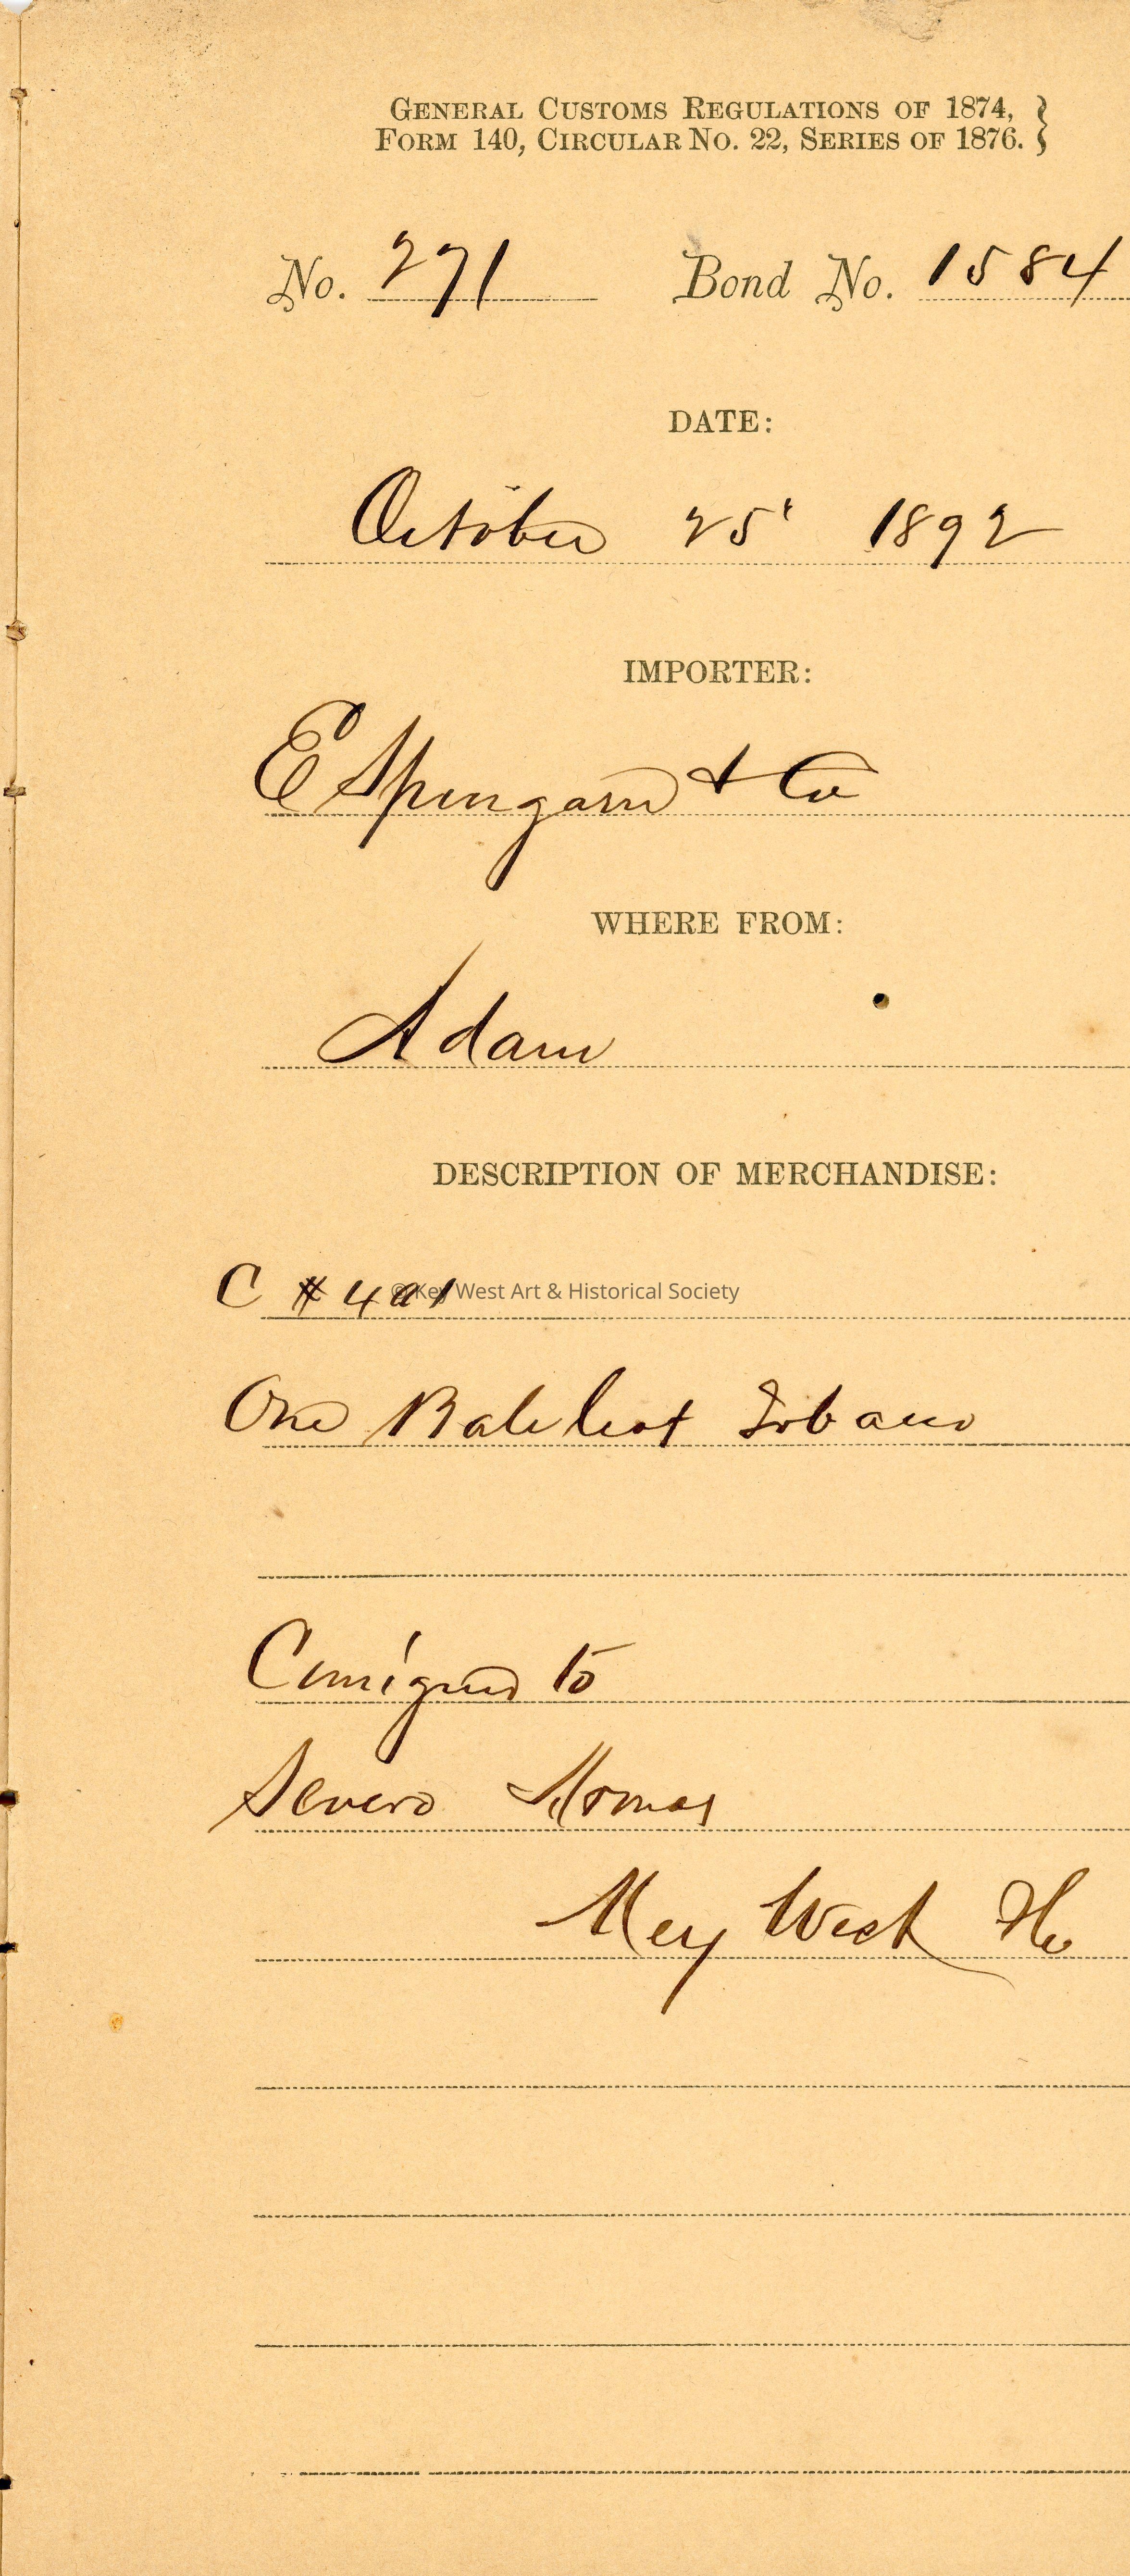 GENERAL CUSTOMS REGULATIONS OF 1874, }
FORM 140, CIRCULAR NO. 22, SERIES OF 1876. }
No. 271 Bond No. 1584
DATE:
October 25' 1892
IMPORTER:
E Spingarn & Co
WHERE FROM:
Adam
DESCRIPTION OF MERCHANDISE:
C # 401
© Key West Art & Historical Society
One Bale leaf Tobacco
Consigned to
Severo
Key West Fla